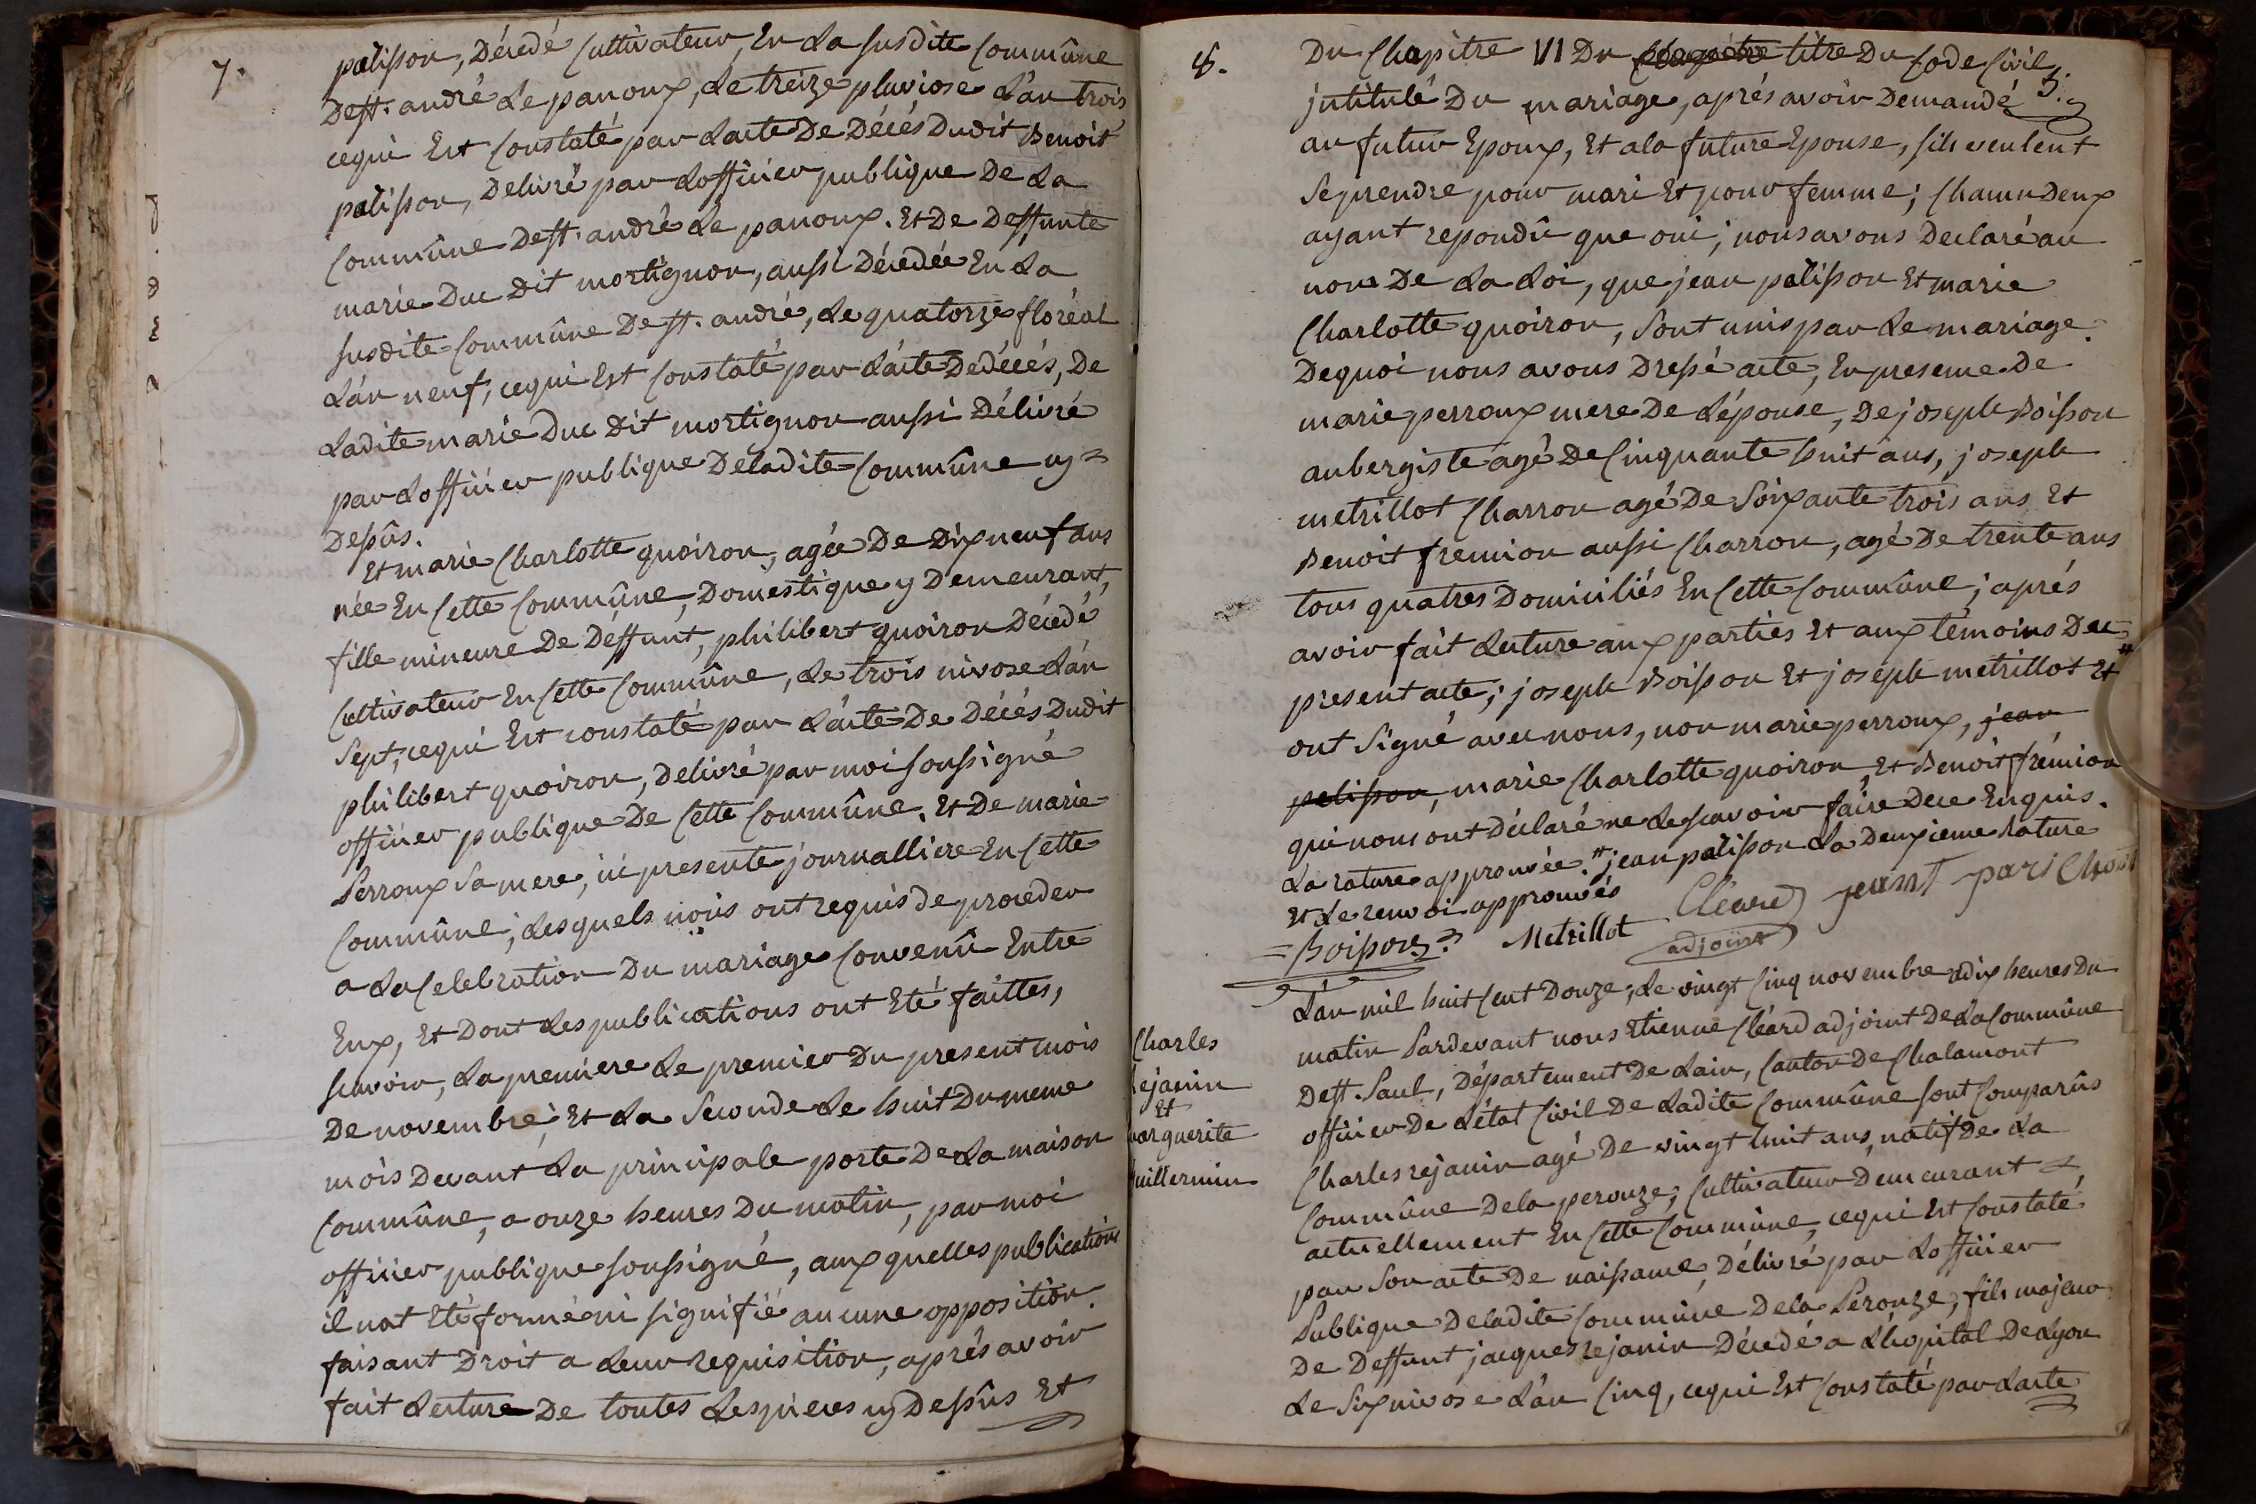 7.
palisson, Décedé Cultivateur, En La susdite Commûne
De st. andré Le panoux, Le treize pluviose L'an trois
cequi Est Constaté par Lacte De Décés Dudit Benoit
palisson, Delivré par Lofficier publique De La
Commûne De st. andré Le panoux. Et De Deffunte
marie Duc Dit mortignon, aussi Décedée En La
susdite Commûne De st. andré, Le quatorze floréal
L'an neuf, cequi Est Constaté par L'acte Dedécés, De
Ladite marie Duc Dit mortignon aussi Délivré
par Lofficier publique Deladite Commûne cy
Dessûs.
Et marie Charlotte quoiron, agée De Dix neuf ans
née En Cette Commûne, Domestique y Demeurant,
fille mineure De Deffunt, philibert quoiron Décedé
Cultivateur En Cette Commûne, Le trois nivose L'an
Sept, cequi Est constaté par L'acte De Décés Dudit
philibert quoiron, Delivré par moi soussigné
officier publique De Cette Commûne. Et De marie
Perroux Sa mere, ici presente journalliere En Cette
Commûne; Lesquels nous ont requis de proceder
a La Celebration Du mariage Convenû Entre
Eux, Et Dont Les publications ont Eté faittes,
scavoir, La premiere Le premier Du present mois
De novembre, Et La Seconde Le huit Du meme
mois Devant La principale porte De La maison
Commûne, a onze heures Du matin, par moi
officier publique soussigné, aux quelles publications
il nat Eté formé ni signifié aucune opposition.
faisant Droit a Leur requisition, aprés avoir
fait Lecture De toutes Les pieces cy Dessûs Et
8.
Du Chapitre VI Du Chapitre titre Du Code Civil
5.
jntitulé Du mariage, aprés avoir Demandé
au futur Epoux, Et ala future Epouse, sils veulent
se prendre pour mari Et pour femme; Chacun Deux
ayant repondû que oui; nous avons Declaré au
nom De La Loi, que jean palisson Et marie
Charlotte quoiron, sont unis par Le mariage.
Dequoi nous avons Dressé acte, En presence De
marie perroux mere De L'épouse, De joseph Boisson
aubergiste agé De Cinquante huit ans, joseph
metrillot Charron agé De Soixante trois ans Et
Benoit fremion aussi Charron, agé De trente ans
tous quatres Domiciliés En Cette Commûne; aprés
avoir fait Lecture aux parties Et aux témoins Du
present acte; joseph Boisson Et joseph metrillot Et #
ont Signé avec nous, non marie perroux, jean
palisson, marie Charlotte quoiron, Et Benoit frémion
qui nous ont Déclaré ne Le scavoir faire Dece Enquis.
La rature approuvée. # jean palisson La Deuxieme Rature
Et Le renvoi approuvés
Boisson Metrillot Cléard jeant parichost
adjoint
Charles
rejanin
Et
marguerite
Guillermin
L'an mil huit Cent Douze, Le vingt Cinq novembre a Dix heures Du
matin Pardevant nous Etienne Cléard adjoint De La Commûne
De st. Paul, Département De Lain, Canton De Chalamont
officier De L'état Civil De Ladite Commûne sont Comparûs
Charles rejanin agé De vingt huit ans, natif De La
Commûne Dela perouze; Cultivateur Demeurant
actuellement En Cette Commûne, cequi Est Constaté
par Son acte De naissance, Délivré par Lofficier
Publique Deladite Commûne Dela Perouze; fils majeur
De Deffunt jacques rejanin Décedé a L'hopital De Lyon
Le Six nivose L'an Cinq, cequi Est Constaté par Lacte